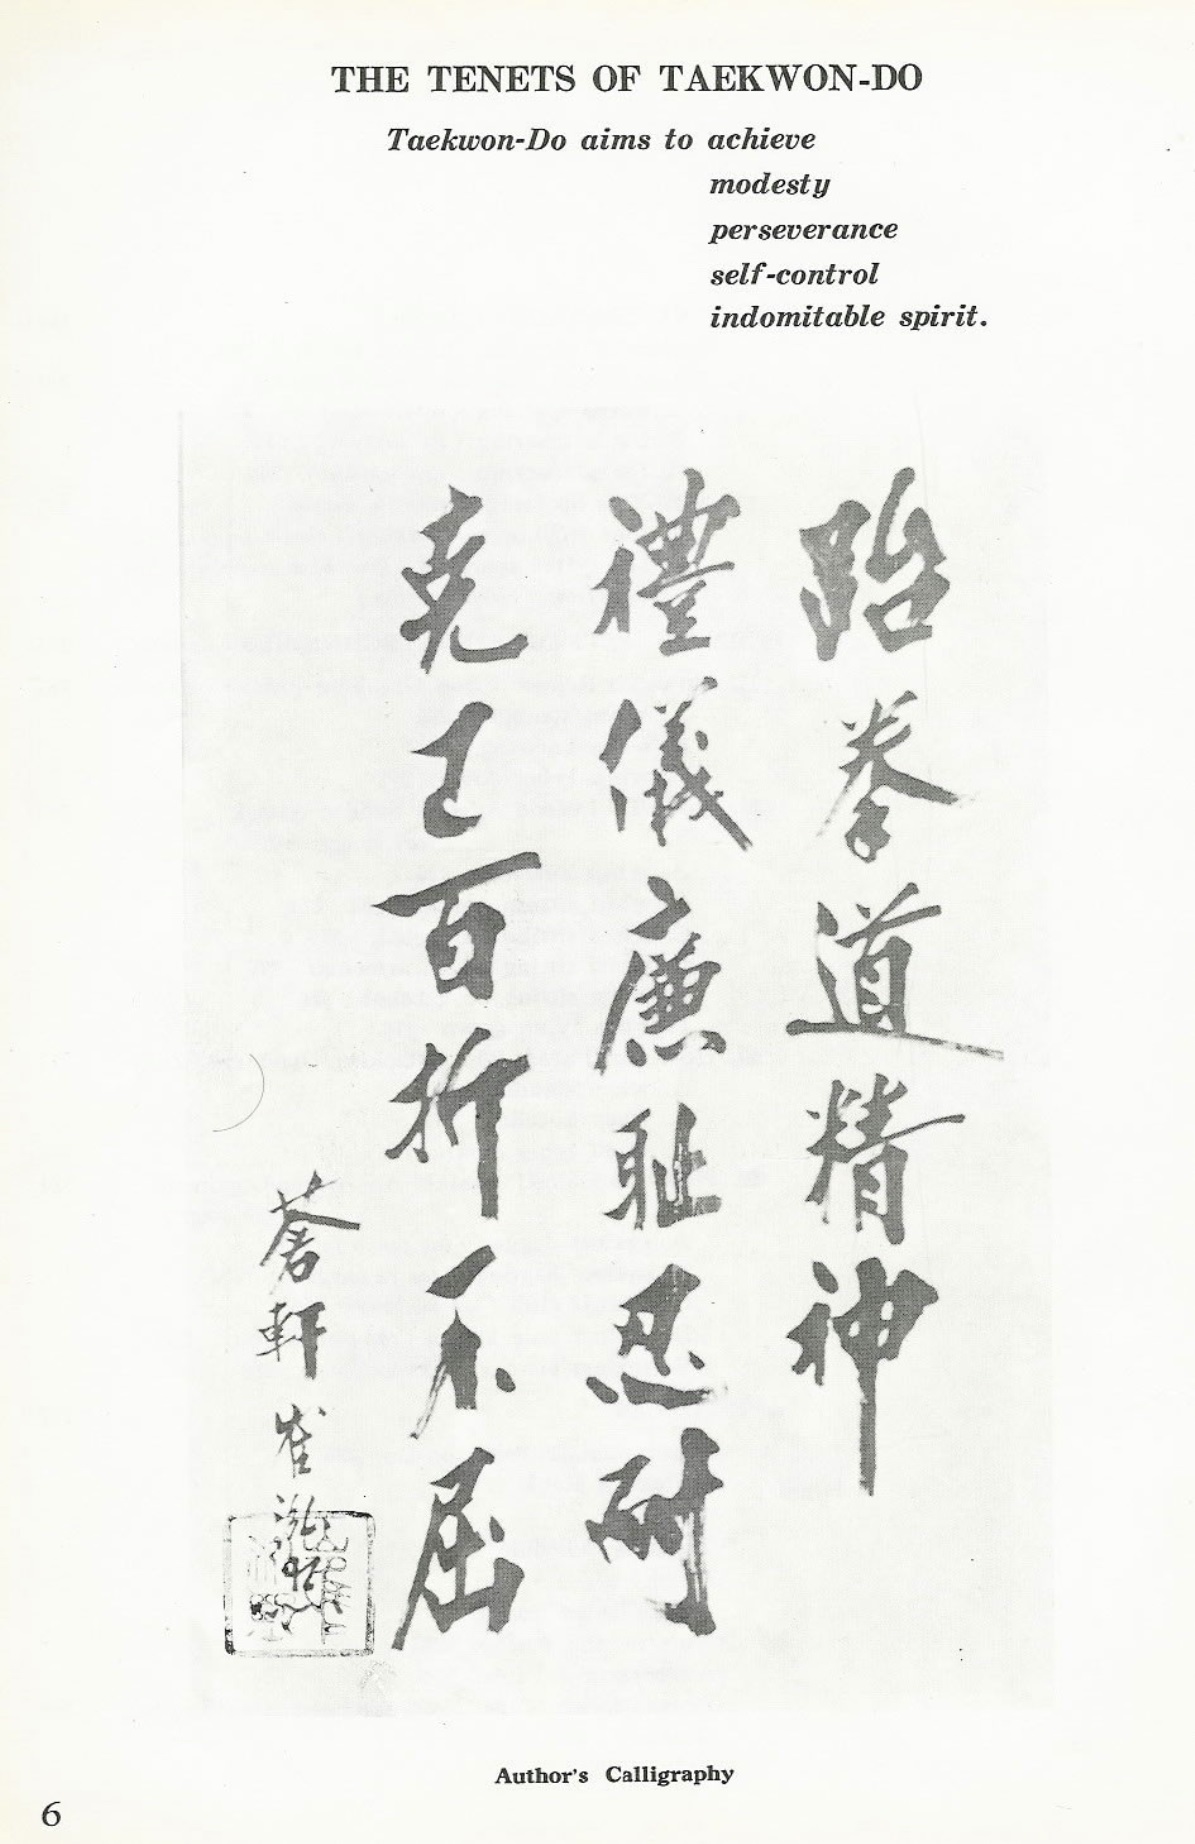 THE TENETS OF TAEKWON-DO
Taekwon-Do aims to achieve
modesty
perseverance
self-control
indomitable spirit.
跆拳道精神
禮儀廉耻忍耐
克己百折不屈
蒼軒 崔泓熙
Author's Calligraphy
6